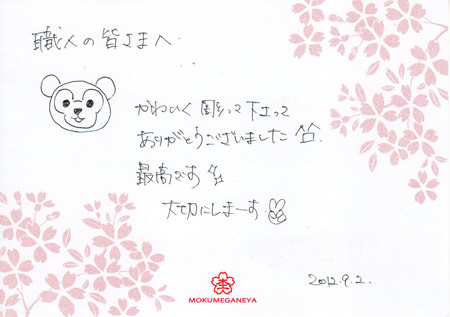 職人の皆さまへ
かわいく彫って下さって
ありがとうございました
最高です
大切にしまーす
MOKUMEGANEYA
2012.9.2.